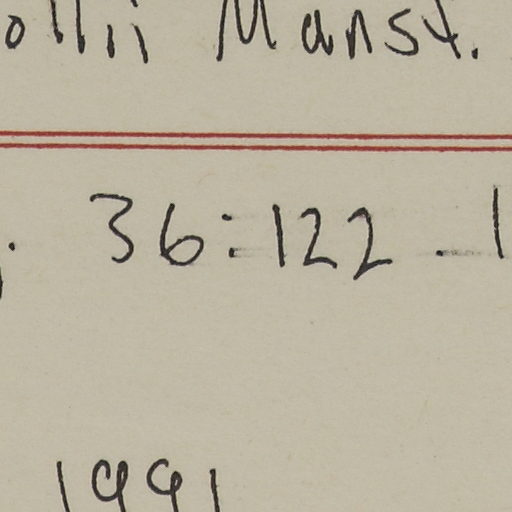 ollii Manst.
36:122. 1
1991